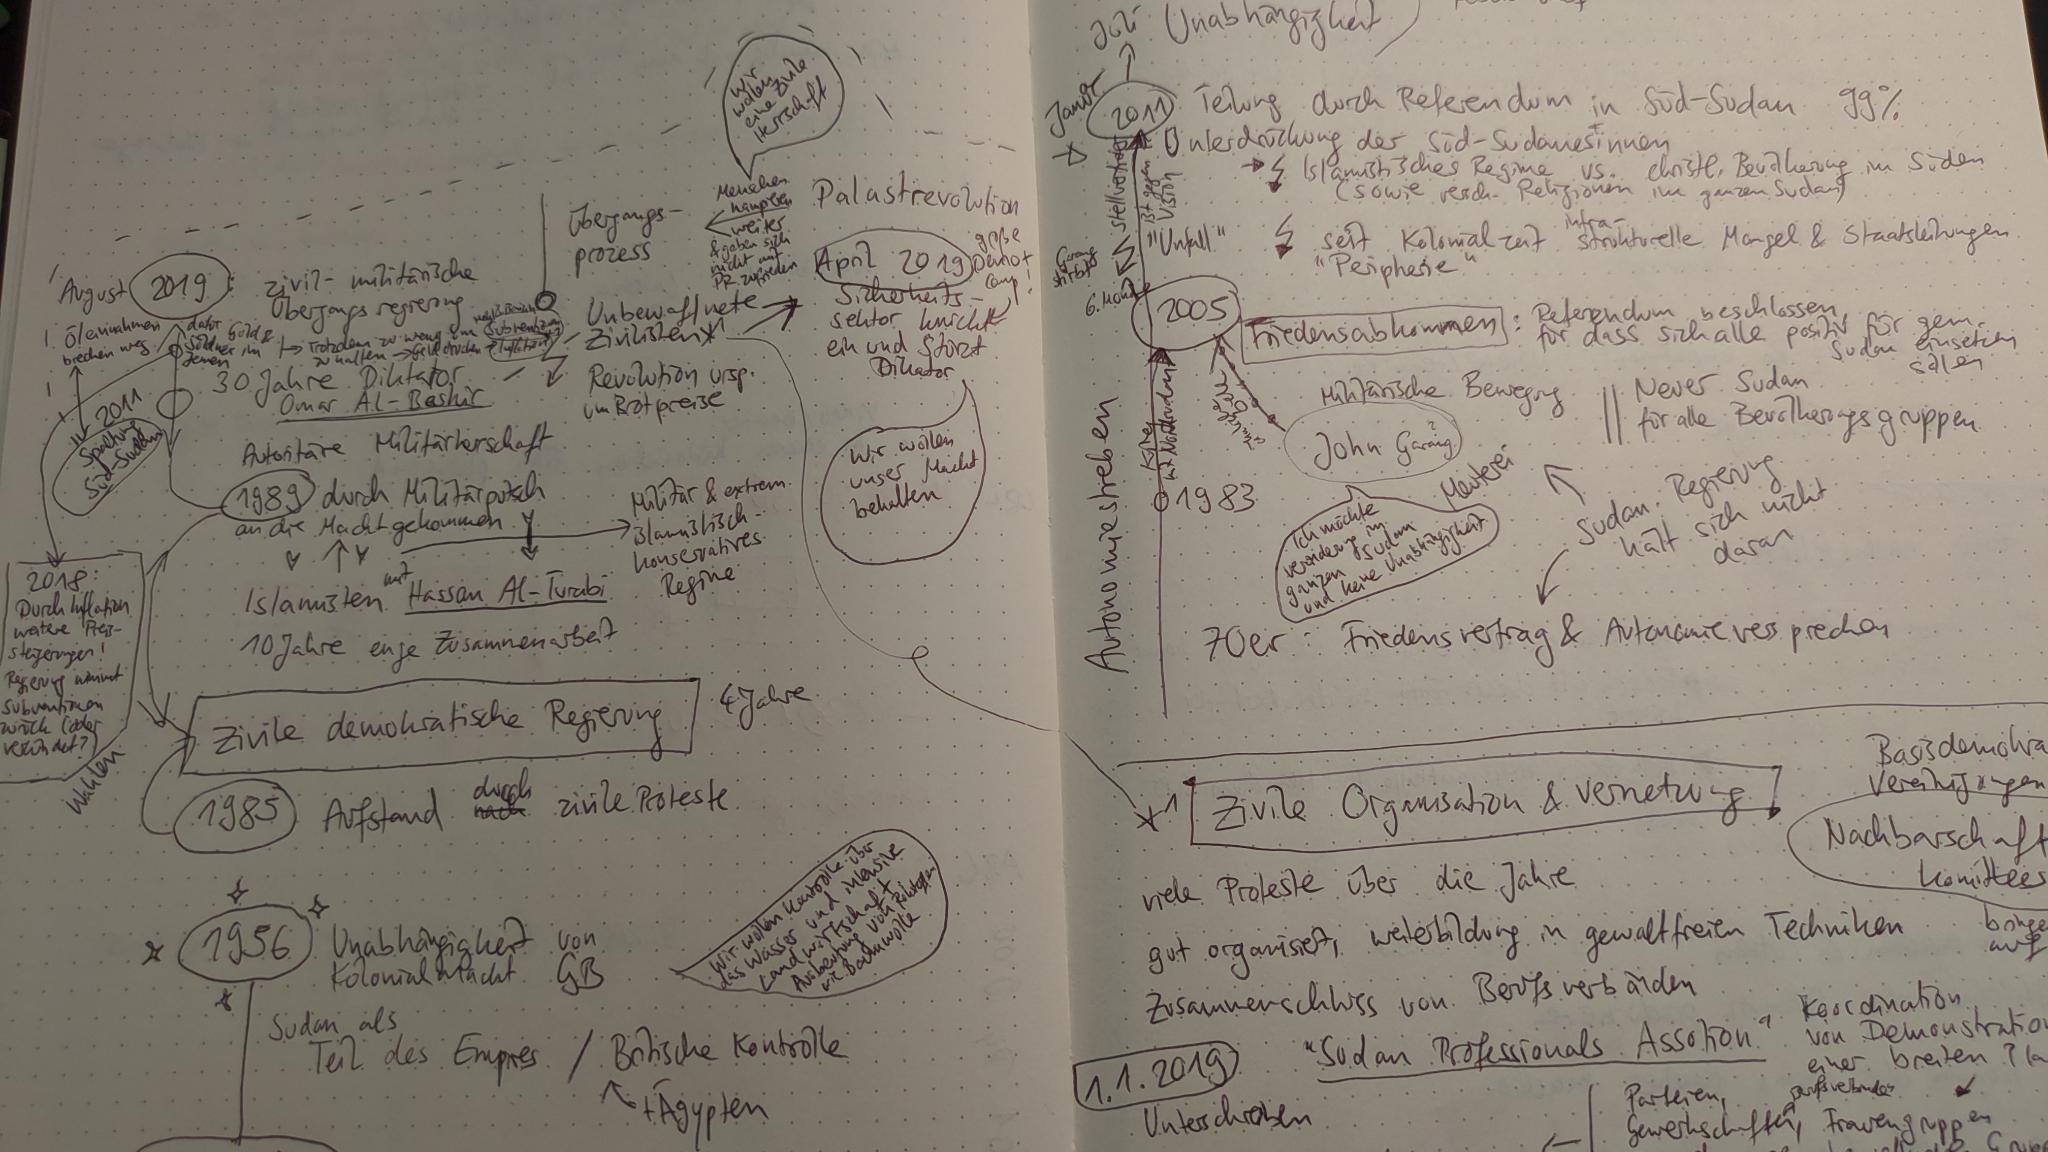 Wir
wollen
eine zivile
Herrschaft
Menschen
kämpfen
weiter
& geben sich
nicht mit
PR zufrieden
Übergangs-
prozess
Palastrevolution
August 2019
zivil-militärische
Übergangsregierung
! Öleinnahmen
brechen weg
dafür
Gold &
Söldner im
Jemen
Trotzdem zu wenig um
Subventionen
zu halten → Geld drucken → Inflation
Unbewaffnete
Zivilisten *1
April 2019
große
Demo +
camp!
Sicherheits-
sektor knickt
ein und stürzt
Diktator
30 Jahre Diktator
Omar Al-Bashir
Revolution ursp.
um Brotpreise
2011
Spaltung
Süd-Sudan
Wir wollen
unser Macht
behalten
Autoritäre Militärherschaft
1989 durch Militärputsch
an die Macht gekommen
Militär & extrem.
islamistisch-
konservatives
Regime
Islamisten mit Hassan Al-Turabi
10 Jahre enge Zusammenarbeit
2018:
Durch Inflation
weitere Preis-
steigerungen!
Regierung nimmt
Subventionen
zurück (oder
verkündet?)
Wahlen
Zivile demokratische Regierung
4 Jahre
1985 Aufstand durch nach zivile Proteste
Wir wollen Kontrolle über
das Wasser und intensive
Landwirtschaft
Ausbeutung von Rohstoffen
wie Baumwolle
1956 Unabhängigkeit von
Kolonialmacht GB
Sudan als
Teil des Empires / Britische Kontrolle
+ Ägypten
Juli Unabhängigkeit
Januar
2011 Teilung durch Referendum in Süd-Sudan 99%
Unterdrückung der Süd-Sudanes*innen
Islamistisches Regime vs. christl. Bevölkerung im Süden
(sowie versch. Religionen im ganzen Sudan)
seit Kolonialzeit infra-strukturelle Mangel & Staatsleitungen
"Peripherie"
"Unfall"
Garang
stirbt
6. Monate
Vision
2005
Friedensabkommen: Referendum beschlossen,
für dass sich alle positiv für gem.
Sudan einsetzen
sollen
Militärische Bewegung
Neuer Sudan
für alle Bevölkerungsgruppen
John Garang?
Autonomiestreben
1983
Meuterei
Ich möchte
veränderung im
ganzen Sudan
und keine Unabhängigkeit
Sudan. Regierung
hält sich nicht
daran
70er: Friedensvertrag & Autonomieversprechen
*1 Zivile Organisation & Vernetzung
Basisdemokra
Vereinigungen
Nachbarschaft
komittees
viele Proteste über die Jahre
gut organisiert, weiterbildung in gewaltfreien Techniken
Zusammenschluss von Berufsverbänden
"Sudan Professionals Assotion"
Koordination
von Demonstration
einer breiten
1.1.2019
Unterschreiben
Parteien,
Berufsverbände
Gewerkschaften, Frauengruppen